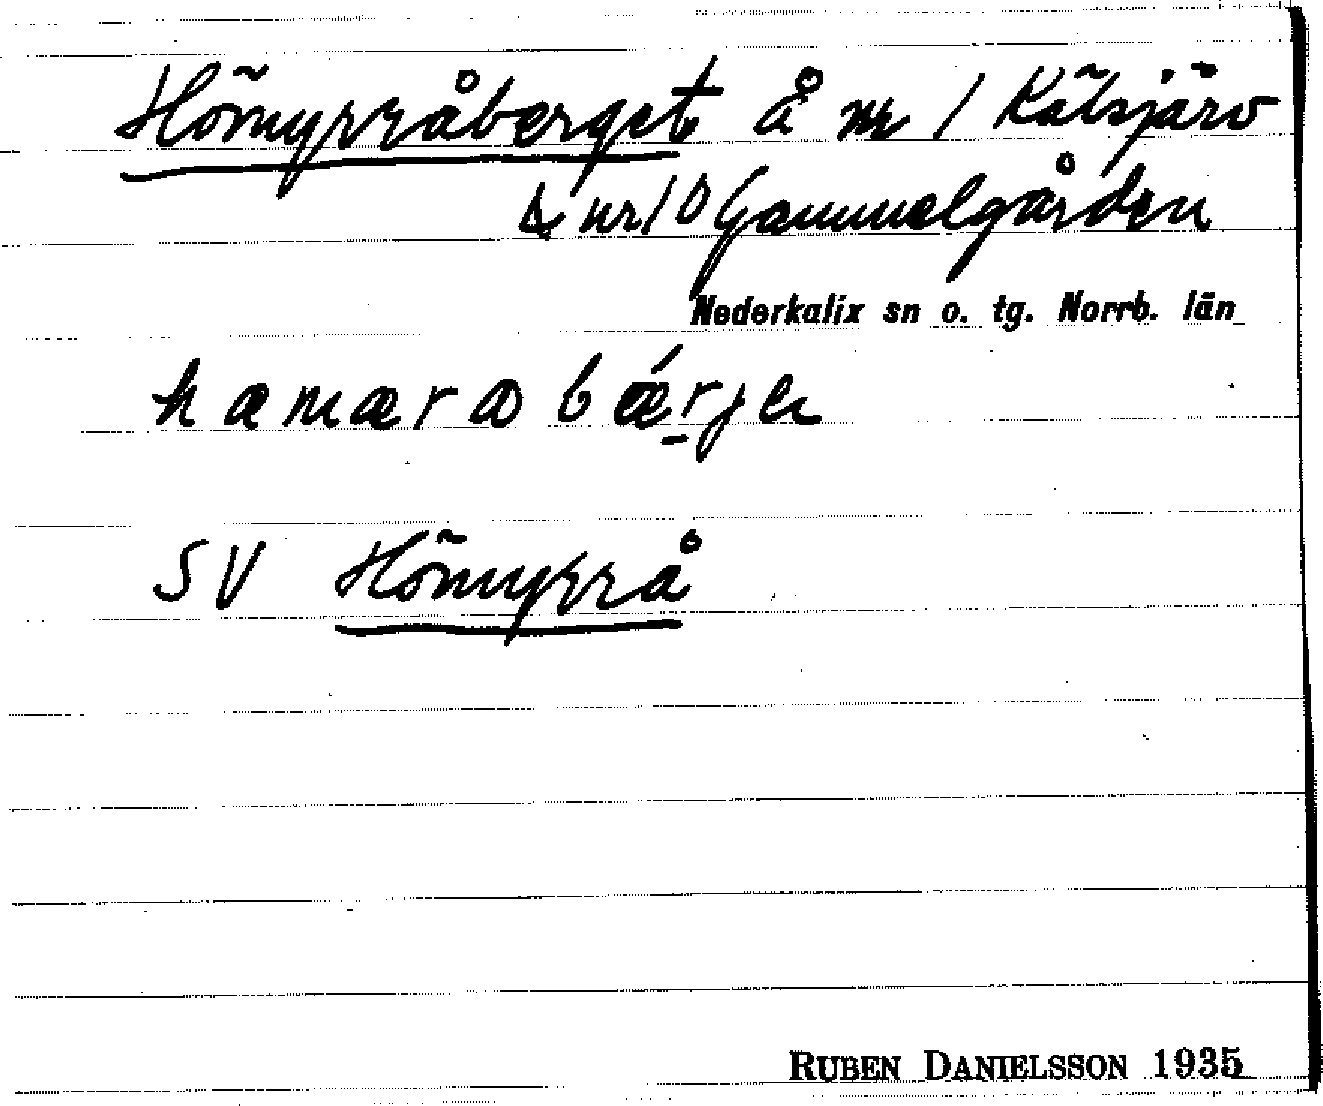 Hömyrråberget å nr 1 Kälsjärv
& nr 10 Gammelgården
Nederkalix sn o. tg. Norrb. län
hamæra bǽrjɛ
SV Hömyrrå
RUBEN DANIELSSON 1935